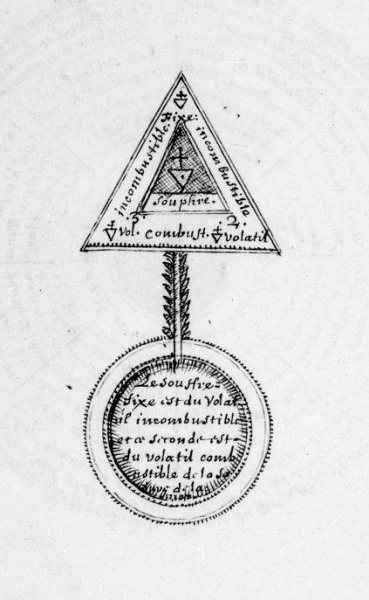 Fixe.
incombustible.
incombustible
souphre.
3.
2.
Vol. combust. volatil
Le souffre
fixe est du Volat
il incombustible
et ce seconde est
du volatil comb
ustible de la sa